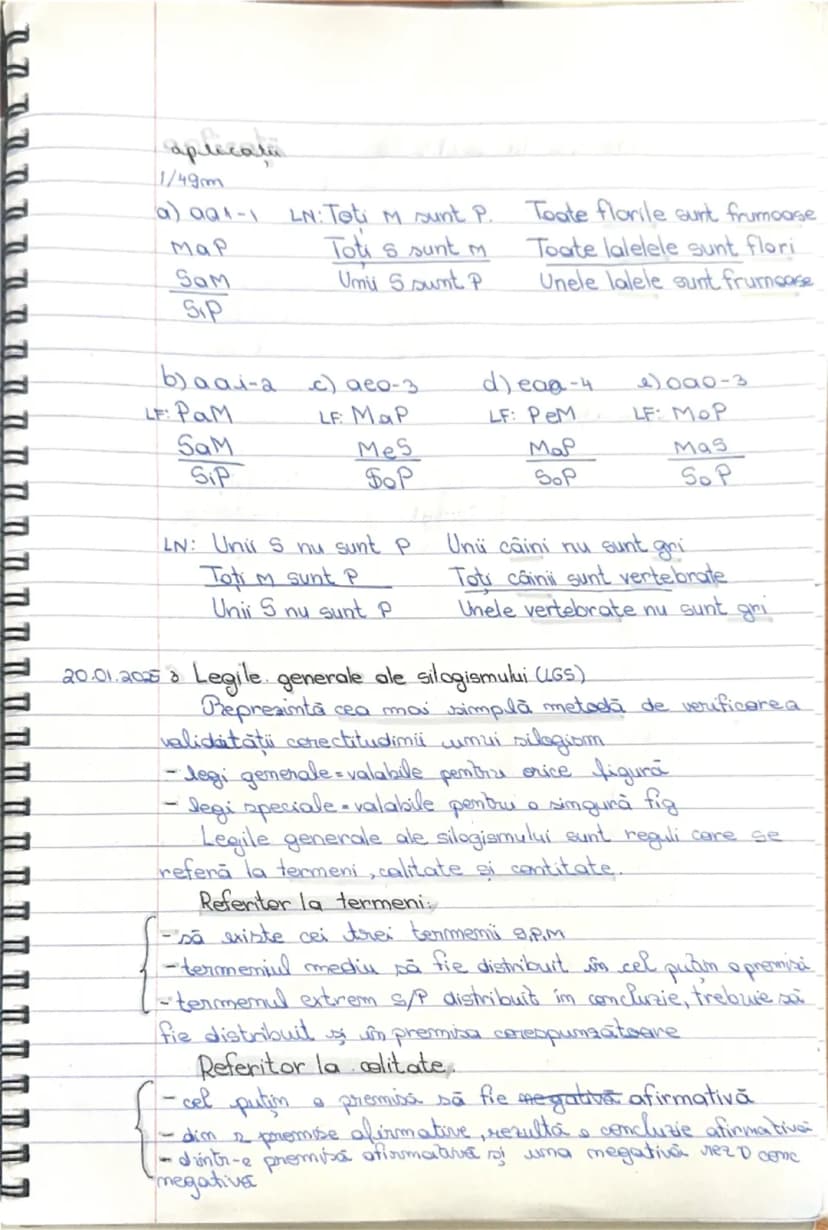 aplicații
1/49m
a) aai-1 LN: Toți M sunt P. Toate florile sunt frumoase
MaP Toți S sunt M Toate lalelele sunt flori
SaM Unii S sunt P Unele lalele sunt frumoase
SiP
b) aai-2 c) aeo-3 d) eaa-4 e) oao-3
LF: PaM LF: MaP LF: PeM LF: MoP
SaM MeS MaP MaS
SiP SoP SoP SoP
LN: Unii S nu sunt P Unii câini nu sunt gri
Toți M sunt P Toți câinii sunt vertebrate
Unii S nu sunt P Unele vertebrate nu sunt gri
20.01.2025 Legile generale ale silogismului (LGS)
Reprezintă cea mai simplă metodă de verificarea
validității corectitudimii unui silogism
- legi generale = valabile pentru orice figură
- legi speciale = valabile pentru o singură fig
Legile generale ale silogismului sunt reguli care se
referă la termeni, calitate și cantitate.
Referitor la termeni:
- să existe cei trei termenii S,P,M
- termeniul mediu să fie distribuit în cel puțin o premisă
- termenul extrem S/P distribuit în concluzie, trebuie să
fie distribuit și în premisa corespunzătoare
Referitor la calitate.
- cel puțin o premisă să fie negativă afirmativă
- din 2 premise afirmative, rezultă o concluzie afirmativă
- dintr-o premisă afirmativă și una negativă rez o conc
negativă